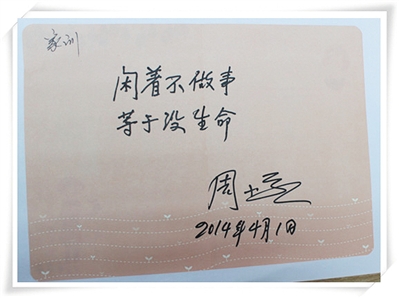 家训
闲着不做事
等于没生命
周
2014年4月1日